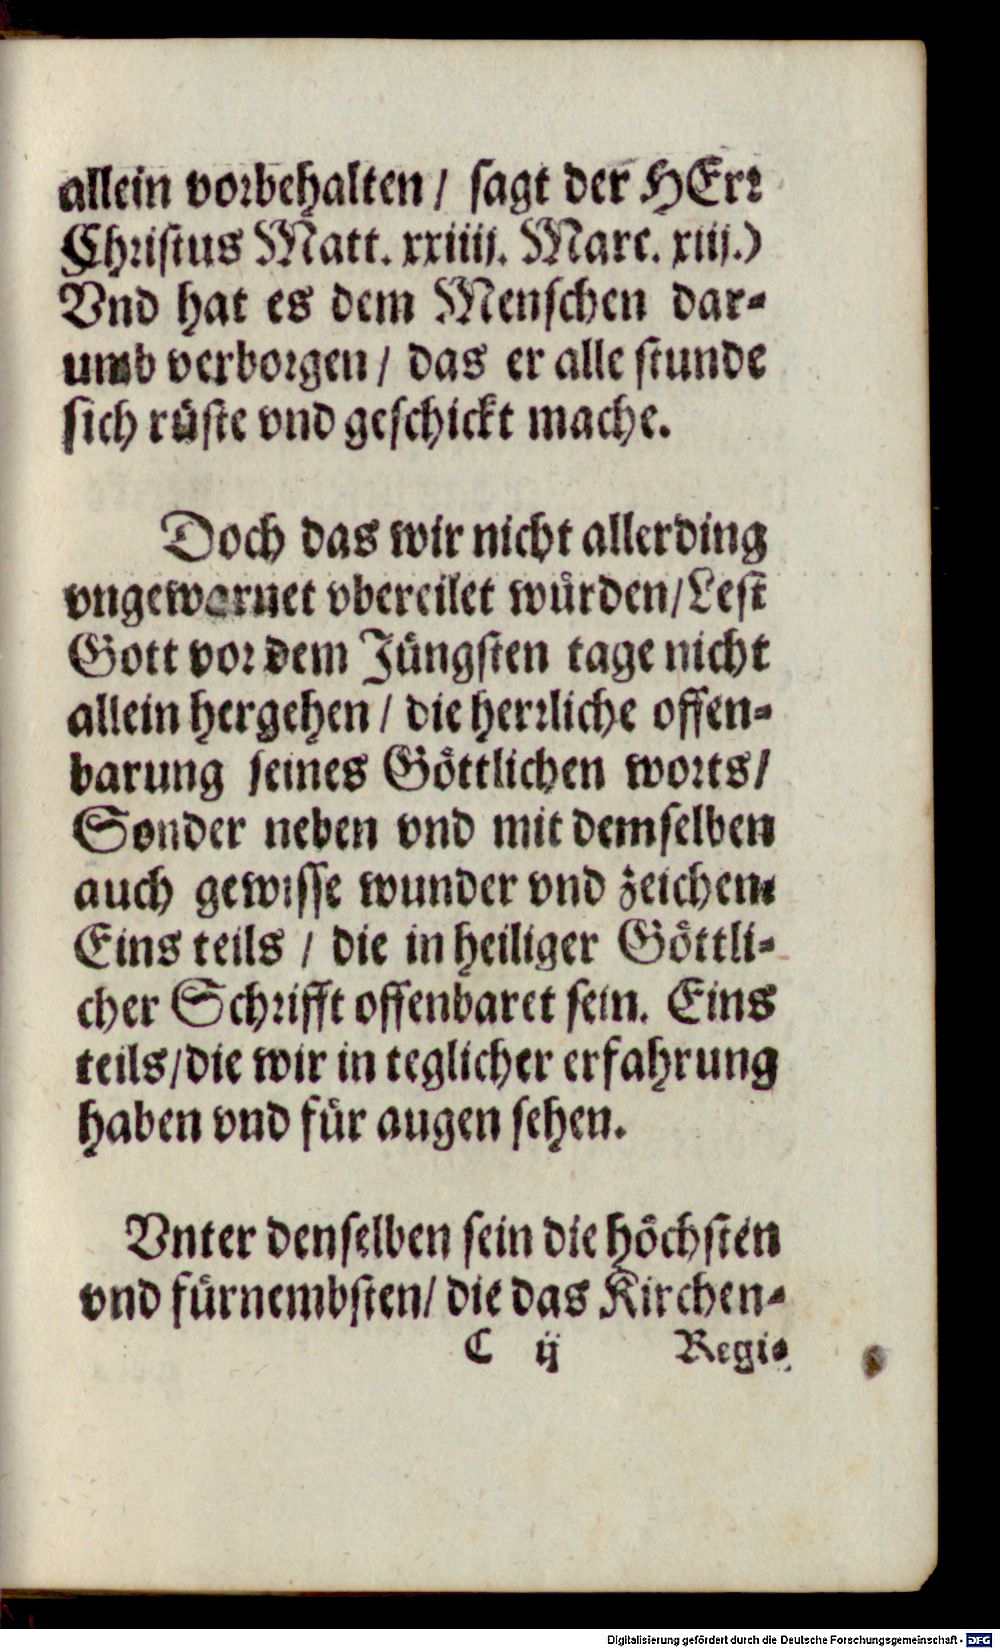 allein vorbehalten / sagt der HErr
Christus Matt. xxiiij. Marc. xiij.)
Vnd hat es dem Menschen dar-
umb verborgen / das er alle stunde
sich rüste vnd geschickt mache.
Doch das wir nicht allerding
vngewarnet vbereilet würden/Lest
Gott vor dem Jüngsten tage nicht
allein hergehen / die herrliche offen-
barung seines Göttlichen worts/
Sonder neben vnd mit demselben
auch gewisse wunder vnd zeichen.
Eins teils / die in heiliger Göttli-
cher Schrifft offenbaret sein. Eins
teils/die wir in teglicher erfahrung
haben vnd für augen sehen.
Vnter denselben sein die höchsten
vnd fürnembsten/ die das Kirchen-
C ij Regi-
Digitalisierung gefördert durch die Deutsche Forschungsgemeinschaft - DFG